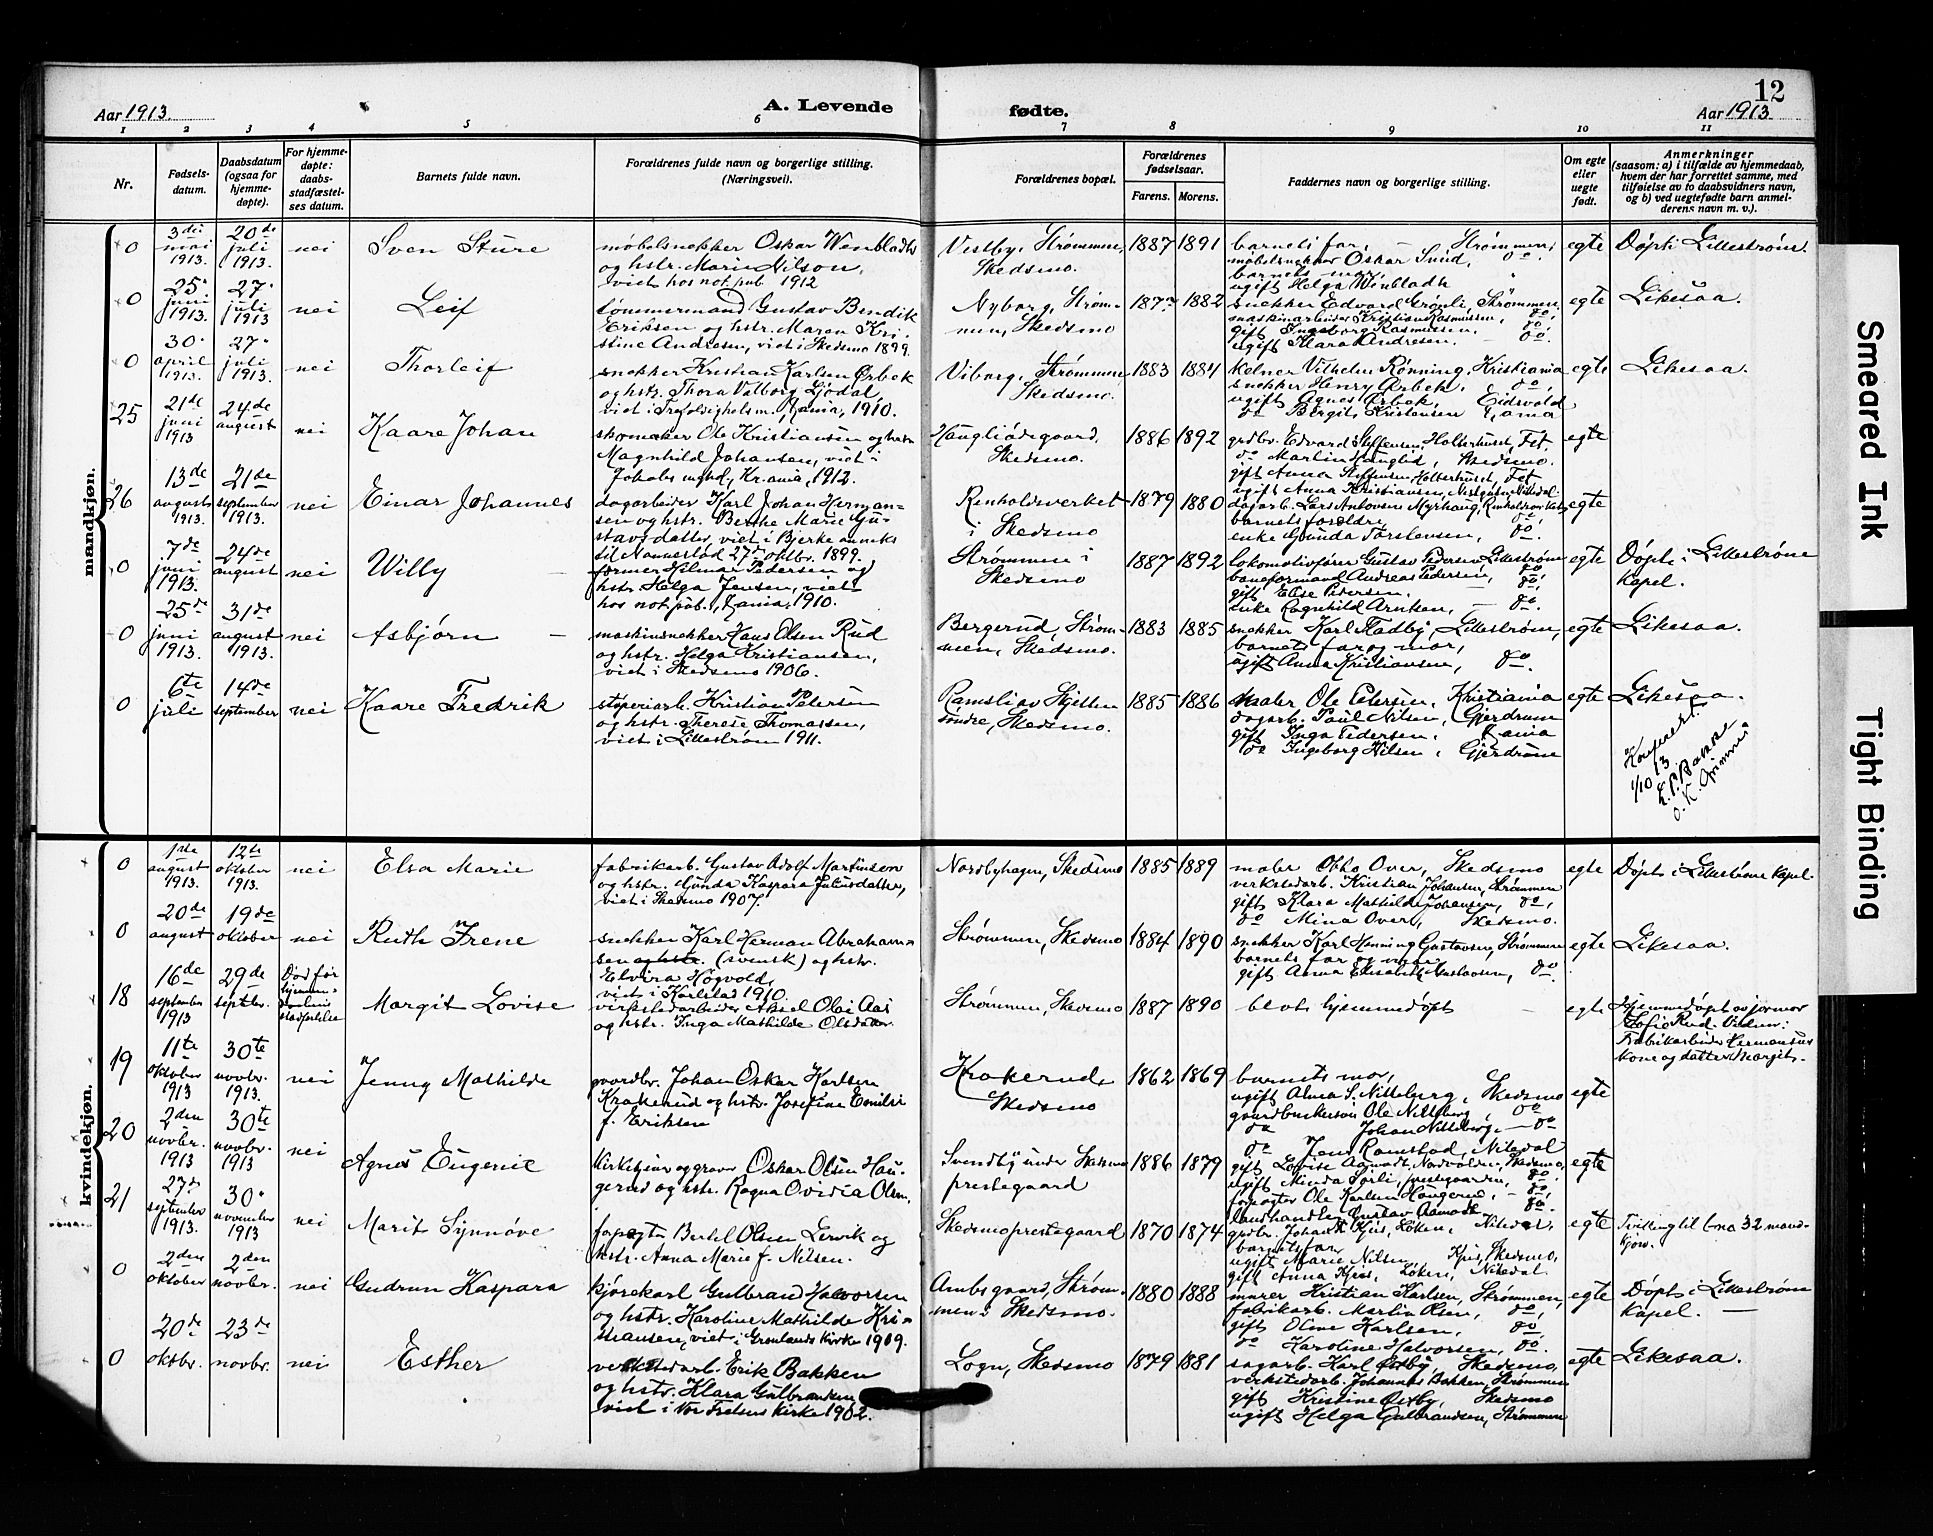 12
Aar 1913.
A. Levende
fødte.
Aar 1913.
1 2 3 4 5 6 7 8 9 10 11
Nr.
Fødsels-
datum.
Daabsdatum
(ogsaa for
hjemme-
døpte).
For hjemme-
døpte:
daabs-
stadfæstel-
ses datum.
Barnets fulde navn.
Forældrenes fulde navn og borgerlige stilling.
(Næringsvei).
Forældrenes bopæl.
Forældrenes
fødselsaar.
Farens. Morens.
Faddernes navn og borgerlige stilling.
Om egte
eller
uegte
født.
Anmerkninger
(saasom: a) i tilfælde av hjemmedaab,
hvem der har forrettet samme, med
tilføielse av to daabsvidners navn,
og b) ved uegtefødte barn anmel-
derens navn m. v.).
mandkjøn.
0
3die
mai
1913.
20de
juli
1913.
nei
Sven Sture
møbelsnekker Oskar Wenbladh
og hstr. Marie Nilson,
viet hos not. pub. 1912
Vestby, Strømmen,
Skedsmo.
1887 1891
barnets far, Strømmen,
møbelsnekker Oskar Sund, do.
barnets mor,
ugift Helga Wenbladh
egte
Døpt i Lillestrøm.
0
25.
juni
1913.
27.
juli
1913
nei
Leif
tømmermand Gustav Bendik
Eriksen og hstr. Maren Kri-
stine Andresen, viet i Skedsmo 1899.
Nyborg, Strøm-
men, Skedsmo
1877 1882
snekker Edvard Grønli, Strømmen,
maskinarbeider Kristian Rasmussen, do,
gift Ingeborg Rasmussen, do,
ugift Klara Andresen. - do.
egte
Likesaa.
0
30.
april
1913.
27.
juli
1913.
nei
Thorleif
snekker Kristian Karlsen Ørbek
og hstr. Thora Valborg Ljødal,
viet i Trefoldighetsm. Kr.ania, 1910.
Viborg, Strømmen,
Skedsmo.
1883 1884
kelner Vilhelm Rønning, Kristiania
snekker Henry Ørbek, do,
ugift Agnes Ørbek, Eidsvold
do Bergit Kristensen Kr.ania
egte
Likesaa.
25
21de
juni
1913
24de
august
nei
Kaare Johan
skomaker Ole Kristiansen og hstr
Magnhild Johansen, viet i
Jakobs mghd, Kr.ania, 1912.
Haugliødegaard,
Skedsmo.
1886 1892
grdbr. Edvard Steffensen, Holterhuset, Fet,
do Martin Hauglid, Skedsmo.
gift Anna Steffensen, Holterhuset, Fet
ugift Anna Kristiansen, Nitedal.
egte
26
13de
august
1913.
21de
september
1913.
nei
Einar Johannes
dagarbeider Karl Johan Herman-
sen og hstr. Berthe Marie Gu-
stavsdatter, viet i Bjerke anneks
til Nannestad 27de oktbr. 1899.
Renholdsverket
i Skedsmo
1879 1880
dagarb. Lars Antonsen Myrhaug, Renholdsverket
barnets forældre,
enke Gunda Torstensen, do.
egte
0
7de
juni
1913.
24de
august
nei
Willy
former Hilmar Pedersen og
hstr. Helga Jensen, viet
hos not. pub., Kr.ania, 1910.
Strømmen i
Skedsmo
1887 1892
lokomotivfører Gustav Pedersen Lillestrøm
baneformand Andreas Pedersen, do,
gift Elise Pedersen, do.
enke Ragnhild Arntsen, - do.
egte
Døpt i Lillestrøm
kapel.
0
25de
juni
1913.
31de
august
1913.
nei
Asbjørn
maskinsnekker Hans Olsen Rud
og hstr. Helga Kristiansen,
viet i Skedsmo 1906.
Bergerud, Strøm-
men, Skedsmo.
1883 1885
snekker Karl Stadby, Lillestrøm,
barnets far og mor,
ugift Anna Kristiansen, do.
egte
Likesaa.
0
6te
juli
14de
september
nei
Kaare Fredrik
støperiarb. Kristian Petersen
og hstr. Therese Thomassen,
viet i Lillestrøm 1911.
Ramsli av Skjetten
søndre, Skedsmo.
1885 1886
maler Ole Petersen, Kristiania
dagarb. Paul Nilsen, Gjerdrum
gift Inga Pedersen, Kr.ania
do Ingeborg Nilsen, Gjerdrum
egte
Likesaa.
1/10 13
kvindekjøn.
0
1ste
august
1913.
12te
oktober
1913.
nei
Elsa Marie
fabrikarb. Gustav Adolf Martinsen
og hstr. Gunda Kaspara Juliusdatter,
viet i Skedsmo 1907.
Nordbyhagen, Skedsmo
1885 1889
maler Otto Over, Skedsmo
verkstedarb. Kristian Johansen, Strømmen
gift Klara Mathilde Johansen, do,
do Mina Over, Skedsmo.
egte
Døpt i Lillestrøm kapel.
0
20de
august
19de
oktober
nei
Ruth Irene
snekker Karl Herman Abraham-
sen og hstr. (svensk) og hstr.
Elvira Högvold,
viet i Karlstad 1910.
Strømmen, Skedsmo
1884 1890
snekker Karl Henning Gustavsen, Strømmen
barnets far og mor,
gift Anna Elisabeth Gustavsen, do.
egte
Likesaa.
18
16de
september
1913
29de
septbr.
Død før
hjemme-
daabens
stadfestelse
Margit Lovise
verkstedarbeider Aksel Olai Aas
og hstr. Inga Mathilde Olsdatter.
Strømmen, Skedsmo
1887 1890
blot hjemmedøpt
egte
Hjemmedøpt av jormor
Sofie Rud. Vidner:
Fabrikarbeider Hermansens
kone og datter Margit.
19
11te
oktober
1913
30te
novbr.
1913.
nei
Jenny Mathilde
gaardbr. Johan Oskar Karlsen
Krakerud og hstr. Josefine Emilie
f. Eriksen
Krakerud,
Skedsmo
1862 1869
barnets mor,
ugift Alma S. Nitteberg, Skedsmo
gaardbrukersøn Ole Nitteberg, do
do Johan Nitteberg, - do
do Jens Ramstad, Nitedal
egte
20
2den
novbr.
1913
30te
novbr.
1913
nei
Agnes Eugenie
Kirketjener og graver Oskar Olsen Hau-
gerud og hstr. Ragna Ovidia Olsen.
Svendby under Skedsmo
prestegaard
1886 1879
gift Lovise Aamodt, Nordvolden, Skedsmo,
ugift Minda Sørli, prestegaarden, do.
forpagter Ole Karlsen Haugerud, - do,
landhandler Gustav Aamodt do.
egte
21
27de
september
1913.
30.
november
1913
nei
Marit Synnøve
forpagter Bertel Olsen Lervik og
hstr. Anna Marie f. Nilsen.
Skedsmo prestegaard
1870 1874
grdbr. Johan Kjus, Løken, Nitedal,
barnets far
ugift Marie Nilsen Kjus, Skedsmo,
gift Anna Kjus, Løken, Nitedal.
egte
Tvilling til No 32 mand-
kjøn.
0
2den
oktober
2den
novbr.
nei
Gudrun Kaspara
kjørekarl Gulbrand Halvorsen
og hstr. Karoline Mathilde Kri-
stiansen, viet i Grønlands kirke 1909.
Ambogaard, Strøm-
men i Skedsmo.
1880 1888
murer Kristian Karlsen, Strømmen,
fabrikarb. Martin Olsen, do,
gift Oline Karlsen, do
do Karoline Halvorsen, do.
egte
Døpt i Lillestrøm
kapel.
0
20de
oktbr.
23de
novbr.
nei
Esther
verkstedarb. Erik Bakken
og hstr. Klara Gulbrandsen
viet i Vor Frelsers kirke 1902.
Logn, Skedsmo
1879 1881
sagarb. Karl Østby, Skedsmo,
verkstedarb. Johannes Bakken, Strømmen
gift Kristine Østby, Skedsmo
ugift Helga Gulbrandsen, Strømmen
egte
Likesaa.
Smeared Ink
Tight Binding